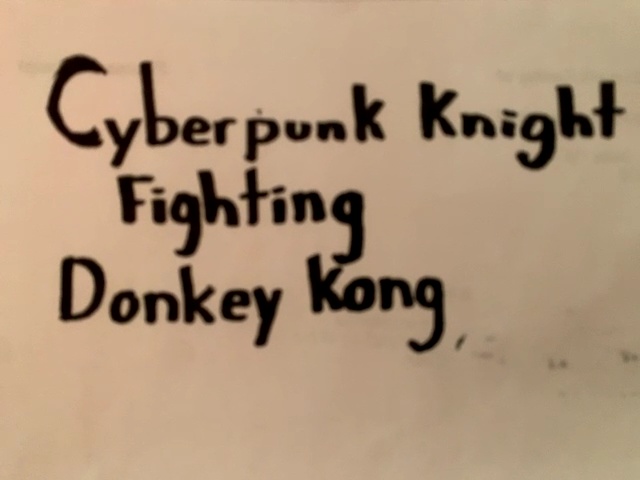 Cyberpunk Knight
Fighting
Donkey Kong